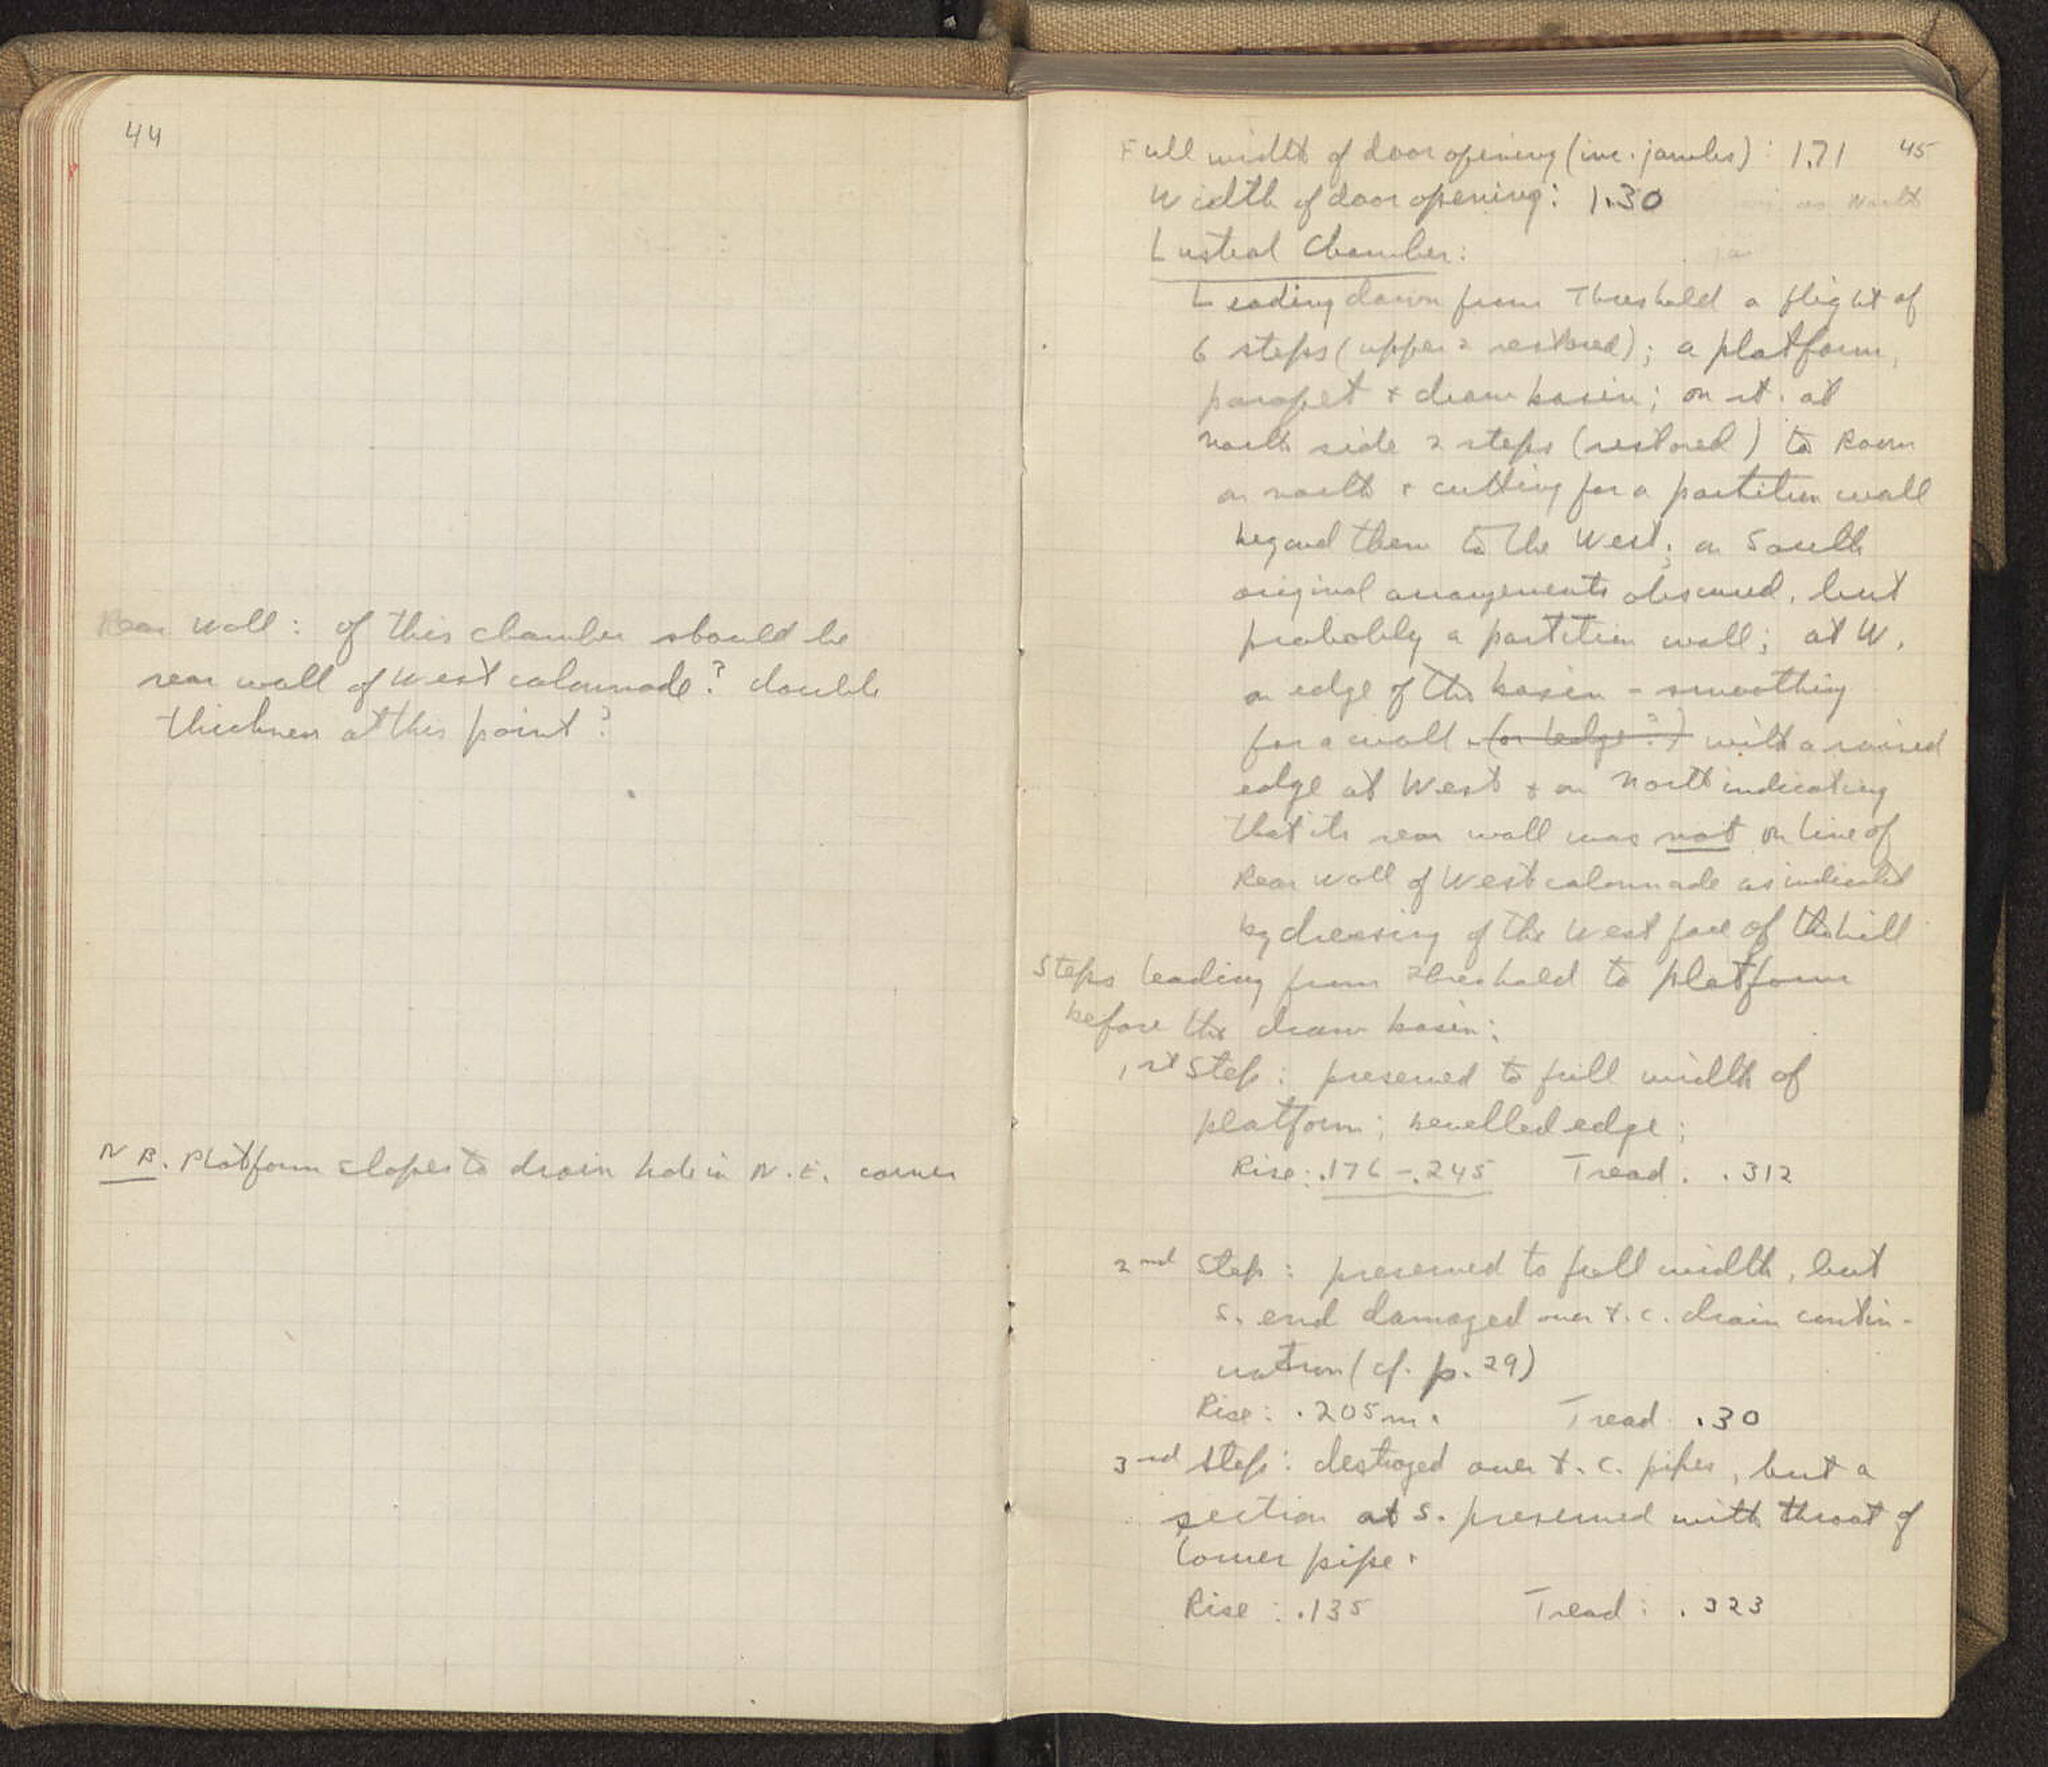 44
Rear Wall: of this chamber should be
rear wall of West colonnade? double
thickness at this point?
N.B. Platform slopes to drain hole in N.E. corner
45
Full width of door opening (inc. jambs): 1.71
Width of door opening: 1.30
as North
Lustral Chamber:
Leading down from Threshold a flight of
6 steps (upper 2 restored); a platform,
parapet + draw basin; on rt. at
north side 2 steps (restored) to Room
on north + cutting for a partition wall
beyond them to the West; on South
original arrangements obscured, but
probably a partition wall; at W.
on edge of the basin - smoothing
for a wall (or ledge?) with a raised
edge at West + on North indicating
that its rear wall was not on line of
Rear Wall of West colonnade as indicated
by dressing of the West face of the hill
Steps leading from threshold to platform
before the draw basin:
1st Step: preserved to full width of
platform; bevelled edge;
Rise: .176 - .245 Tread. .312
2nd Step: preserved to full width, but
S. end damaged over t.c. drain contin-
uation (cf. p. 29)
Rise: .205 m. Tread .30
3rd Step: destroyed over t.c. pipes, but a
section at S. preserved with throat of
lower pipe.
Rise: .135 Tread: .323